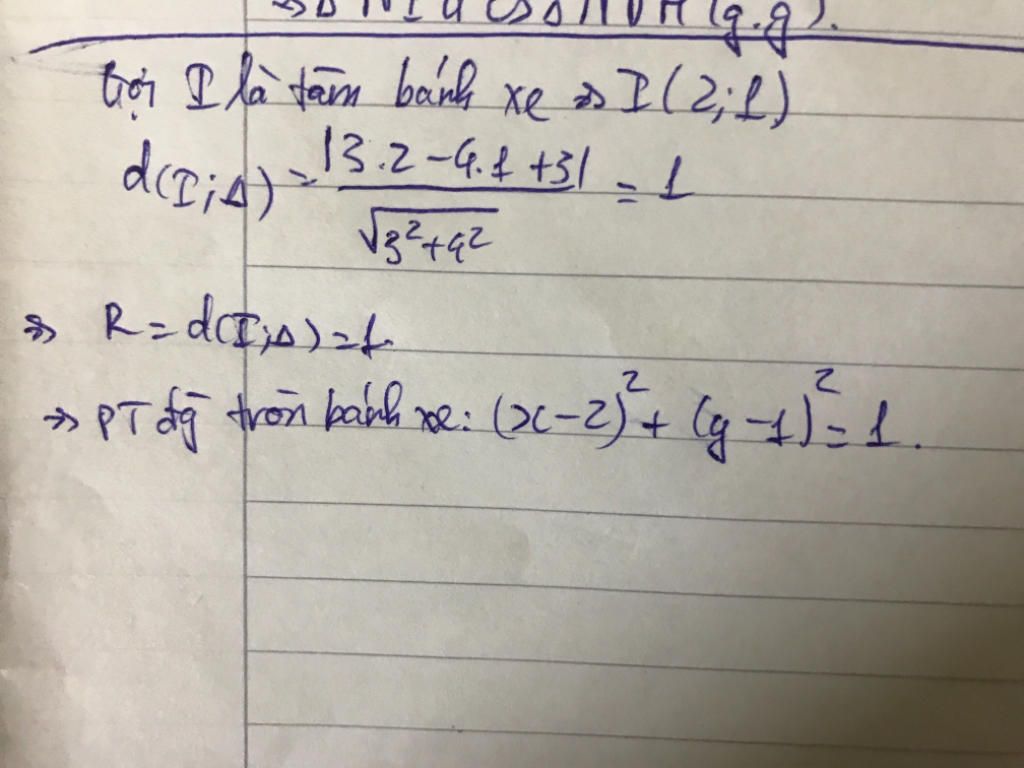 (g.g).
Gọi I là tâm bánh xe => I(2;1)
d(I;Δ) = |3.2 - 4.1 + 3| / √3²+4² = 1
=> R = d(I;Δ) = 1.
=> PT đg tròn bánh xe: (x-2)² + (y-1)² = 1.